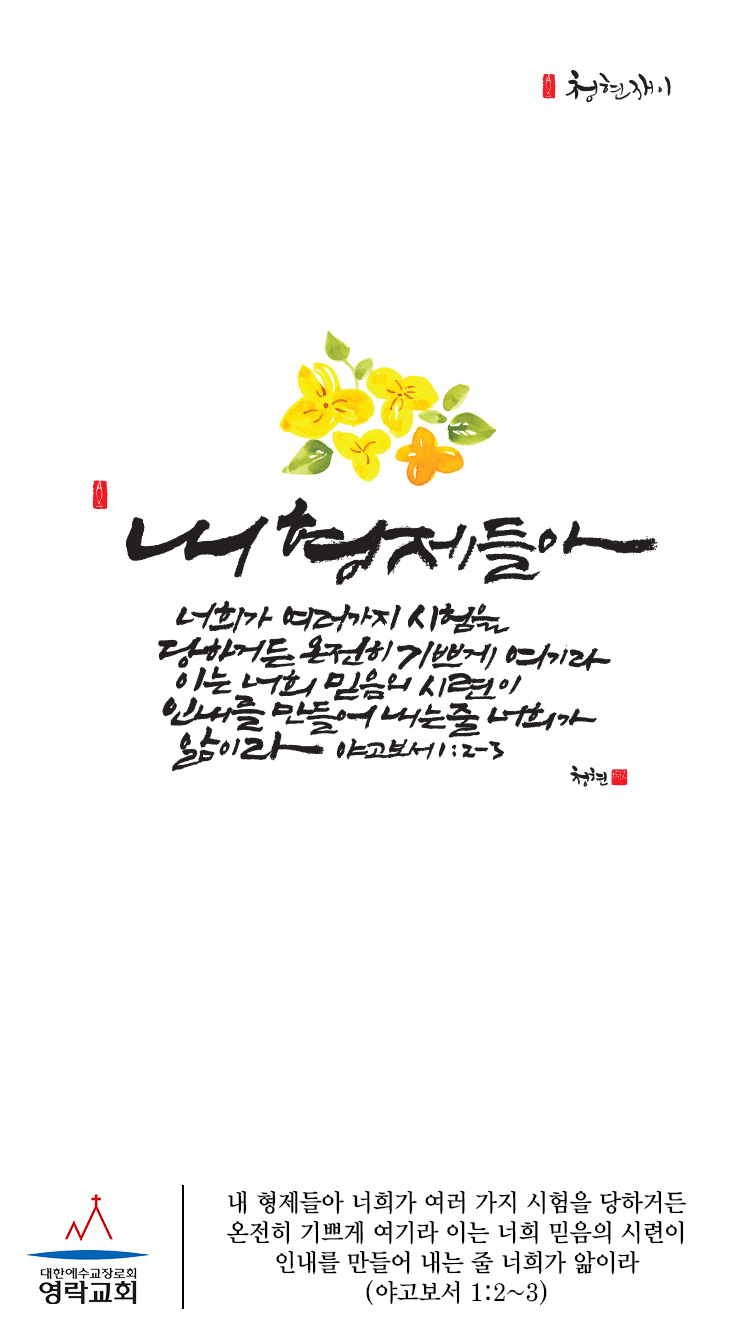 청현재이
내 형제들아
너희가 여러가지 시험을
당하거든 온전히 기쁘게 여기라
이는 너희 믿음의 시련이
인내를 만들어 내는줄 너희가
앎이라 야고보서1:2-3
청현
대한예수교장로회
영락교회
내 형제들아 너희가 여러 가지 시험을 당하거든
온전히 기쁘게 여기라 이는 너희 믿음의 시련이
인내를 만들어 내는 줄 너희가 앎이라
(야고보서 1:2~3)